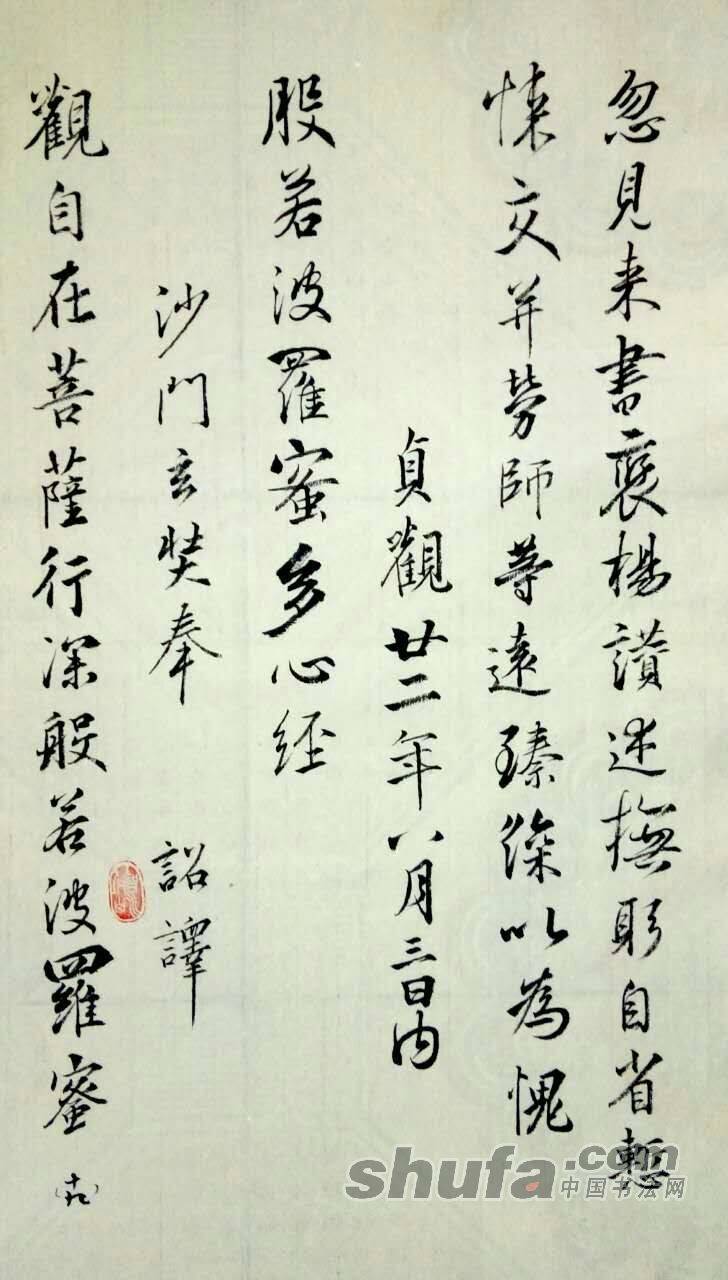 忽見来書褒楊讃述撫躬自省慙
悚交并勞師等遠臻深以為愧
貞觀廿二年八月三日内
般若波羅蜜多心經
沙門玄奘奉 詔譯
觀自在菩薩行深般若波羅蜜
(十九)
shufa.com
中国书法网